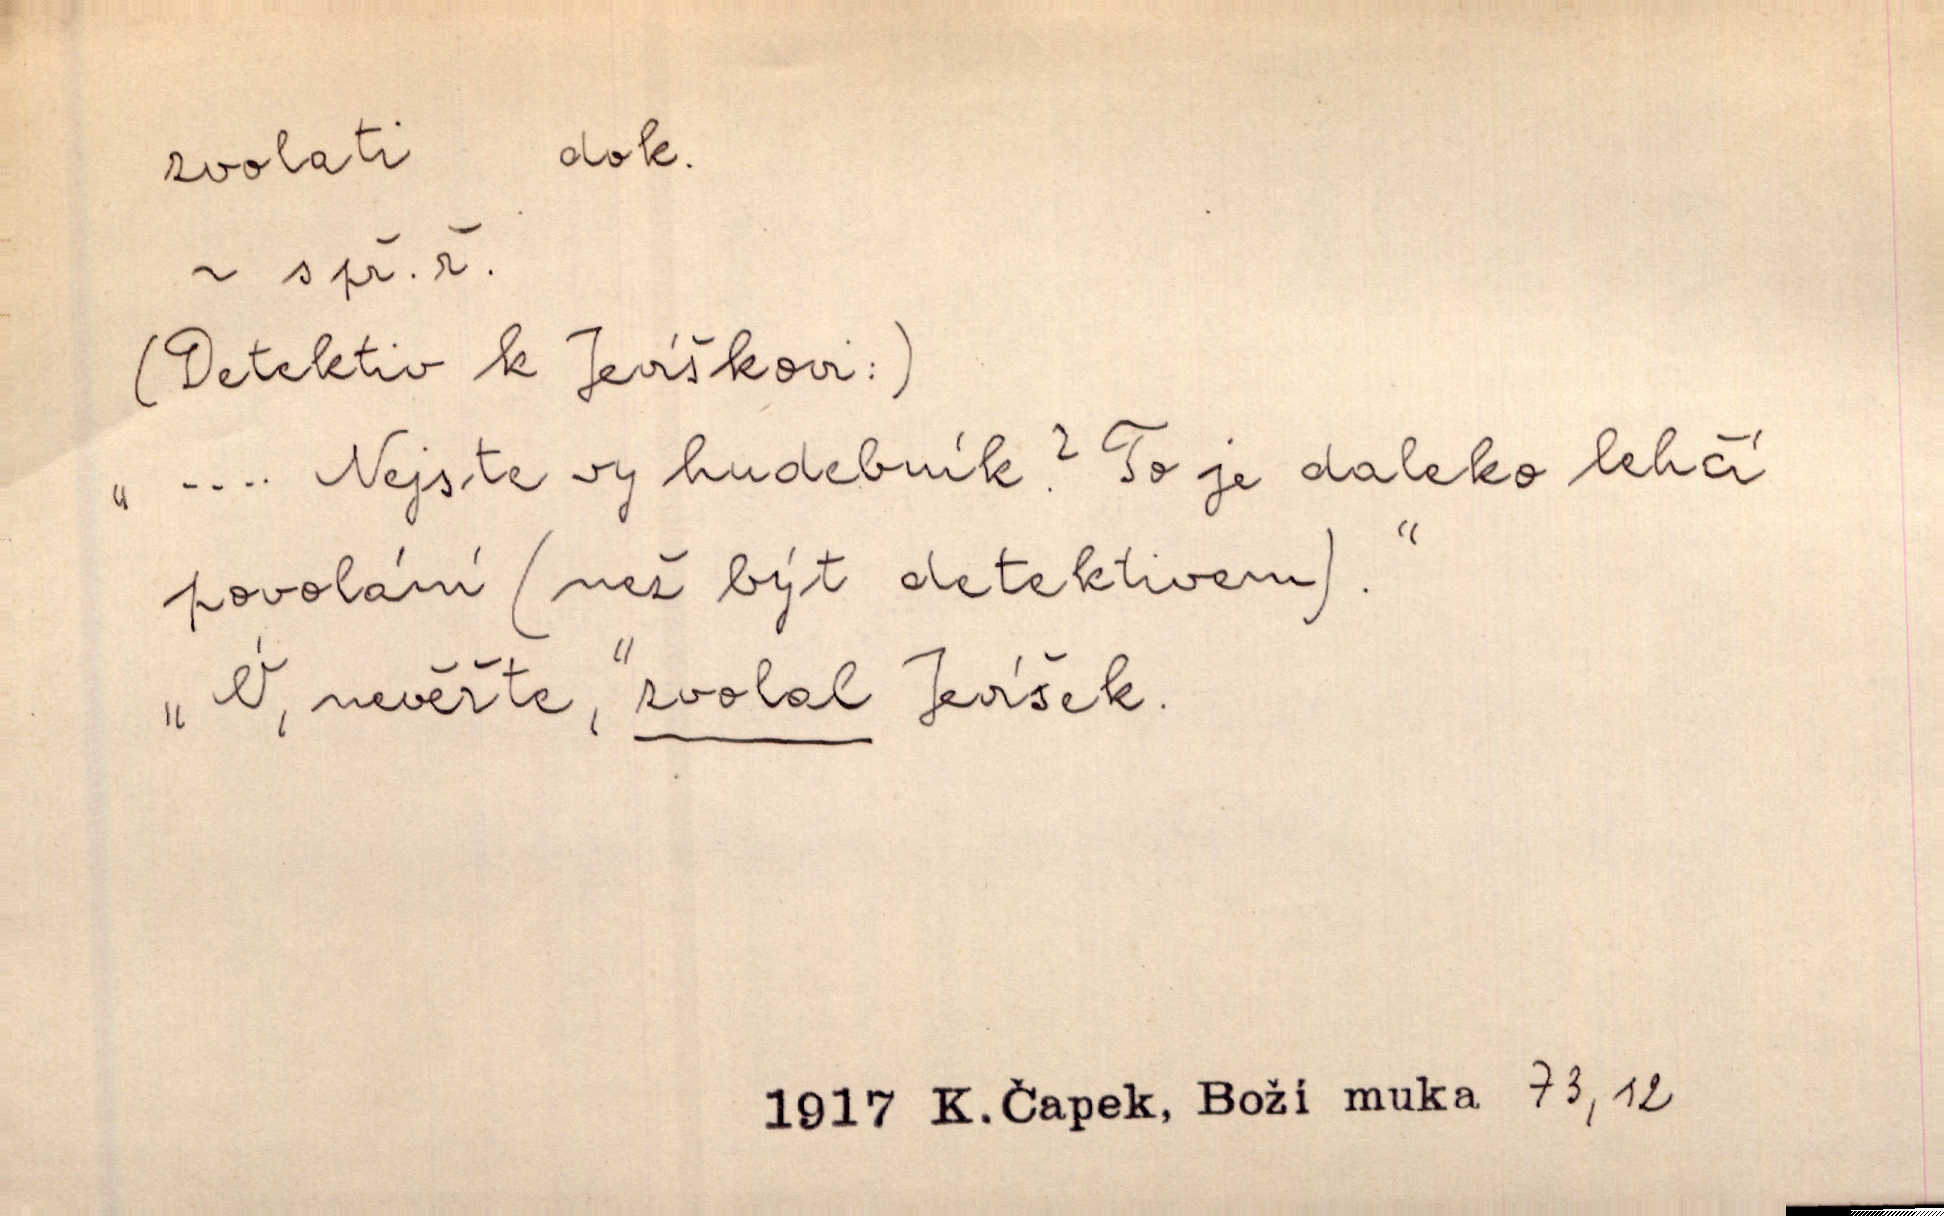 zvolati dok.
~ s př. ř.
(Detektiv k Jevíškovi:)
„ .... Nejste vy hudebník? To je daleko lehčí
povolání (než být detektivem)."
„Ó, nevěřte," zvolal Jevíšek.
1917 K. Čapek, Boží muka 73, 12